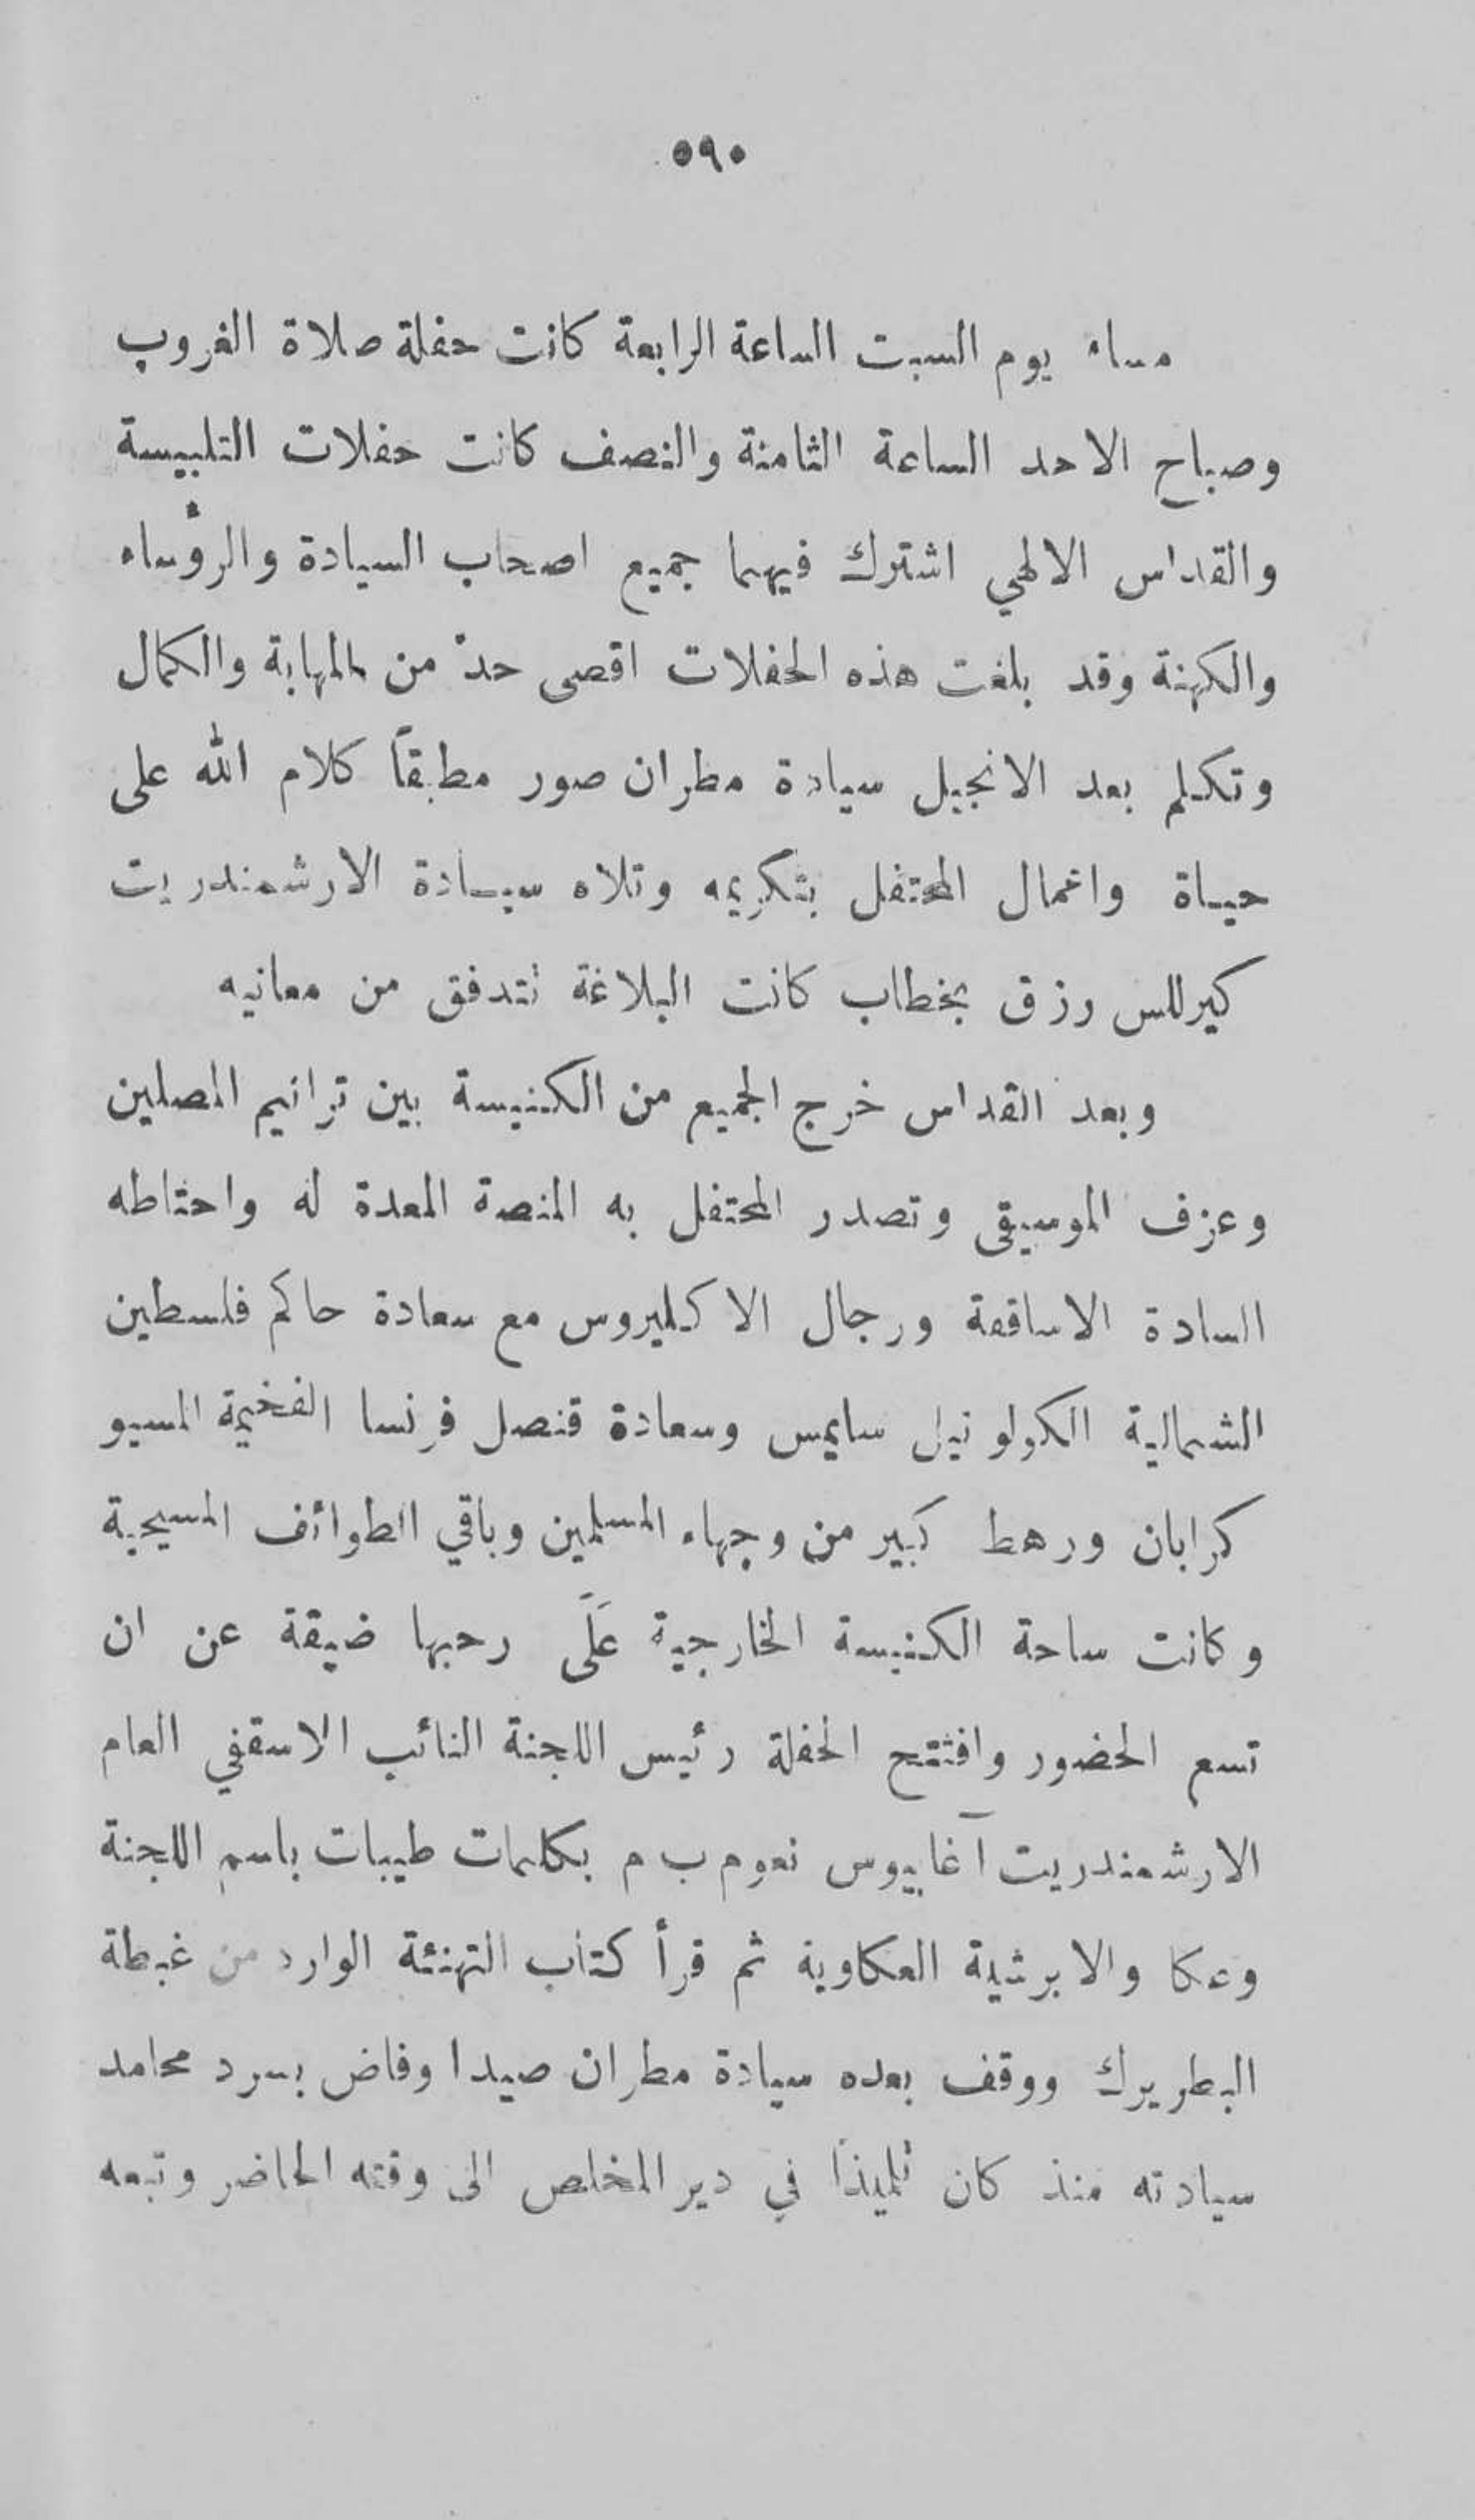 ٥٩٠
مساء يوم السبت الساعة الرابعة كانت حفلة صلاة الغروب
وصباح الاحد الساعة الثامنة والنصف كانت حفلات التلبيسة
والقداس الالهي اشترك فيهما جميع اصحاب السيادة والرؤساء
والكهنة وقد بلغت هذه الحفلات اقصى حدّ من المهابة والكمال
وتكلم بعد الانجيل سيادة مطران صور مطبقاً كلام الله على
حياة واعمال المحتفل بتكريمه وتلاه سيادة الارشمندريت
كيرللس رزق بخطاب كانت البلاغة تتدفق من معانيه
وبعد القداس خرج الجميع من الكنيسة بين ترانيم المصلين
وعزف الموسيقى وتصدر المحتفل به المنصة المعدة له واحتاطه
السادة الاساقفة ورجال الاكليروس مع سعادة حاكم فلسطين
الشمالية الكولونيل سايمس وسعادة قنصل فرنسا الفخيمة المسيو
كرابان ورهط كبير من وجهاء المسلمين وباقي الطوائف المسيحية
وكانت ساحة الكنيسة الخارجية عَلَى رحبها ضيقة عن ان
تسع الحضور وافتتح الحفلة رئيس اللجنة النائب الاسقفي العام
الارشمندريت آغابيوس نعوم ب م بكلمات طيبات باسم اللجنة
وعكا والابرشية العكاوية ثم قرأ كتاب التهنئة الوارد من غبطة
البطريرك ووقف بعده سيادة مطران صيدا وفاض بسرد محامد
سيادته منذ كان تلميذاً في دير المخلص الى وقته الحاضر وتبعه